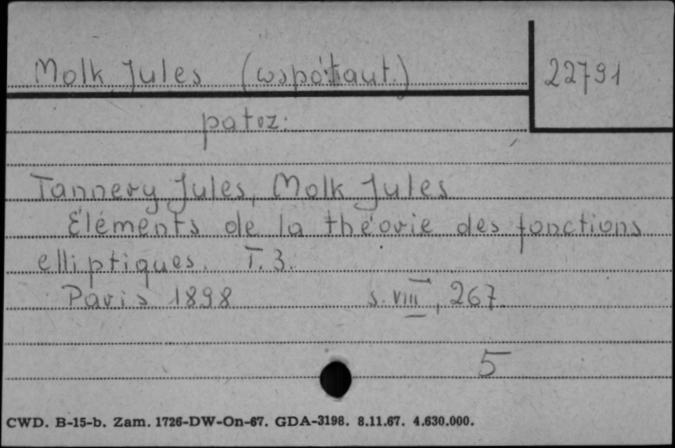 Molk Jules (współaut.)
22791
patrz:
Tannery Jules, Molk Jules
Eléments de la théorie des fonctions
elliptiques. T. 3.
Paris 1898 s. VIII, 267
5
CWD. B-15-b. Zam. 1726-DW-On-67. GDA-3198. 8.11.67. 4.630.000.